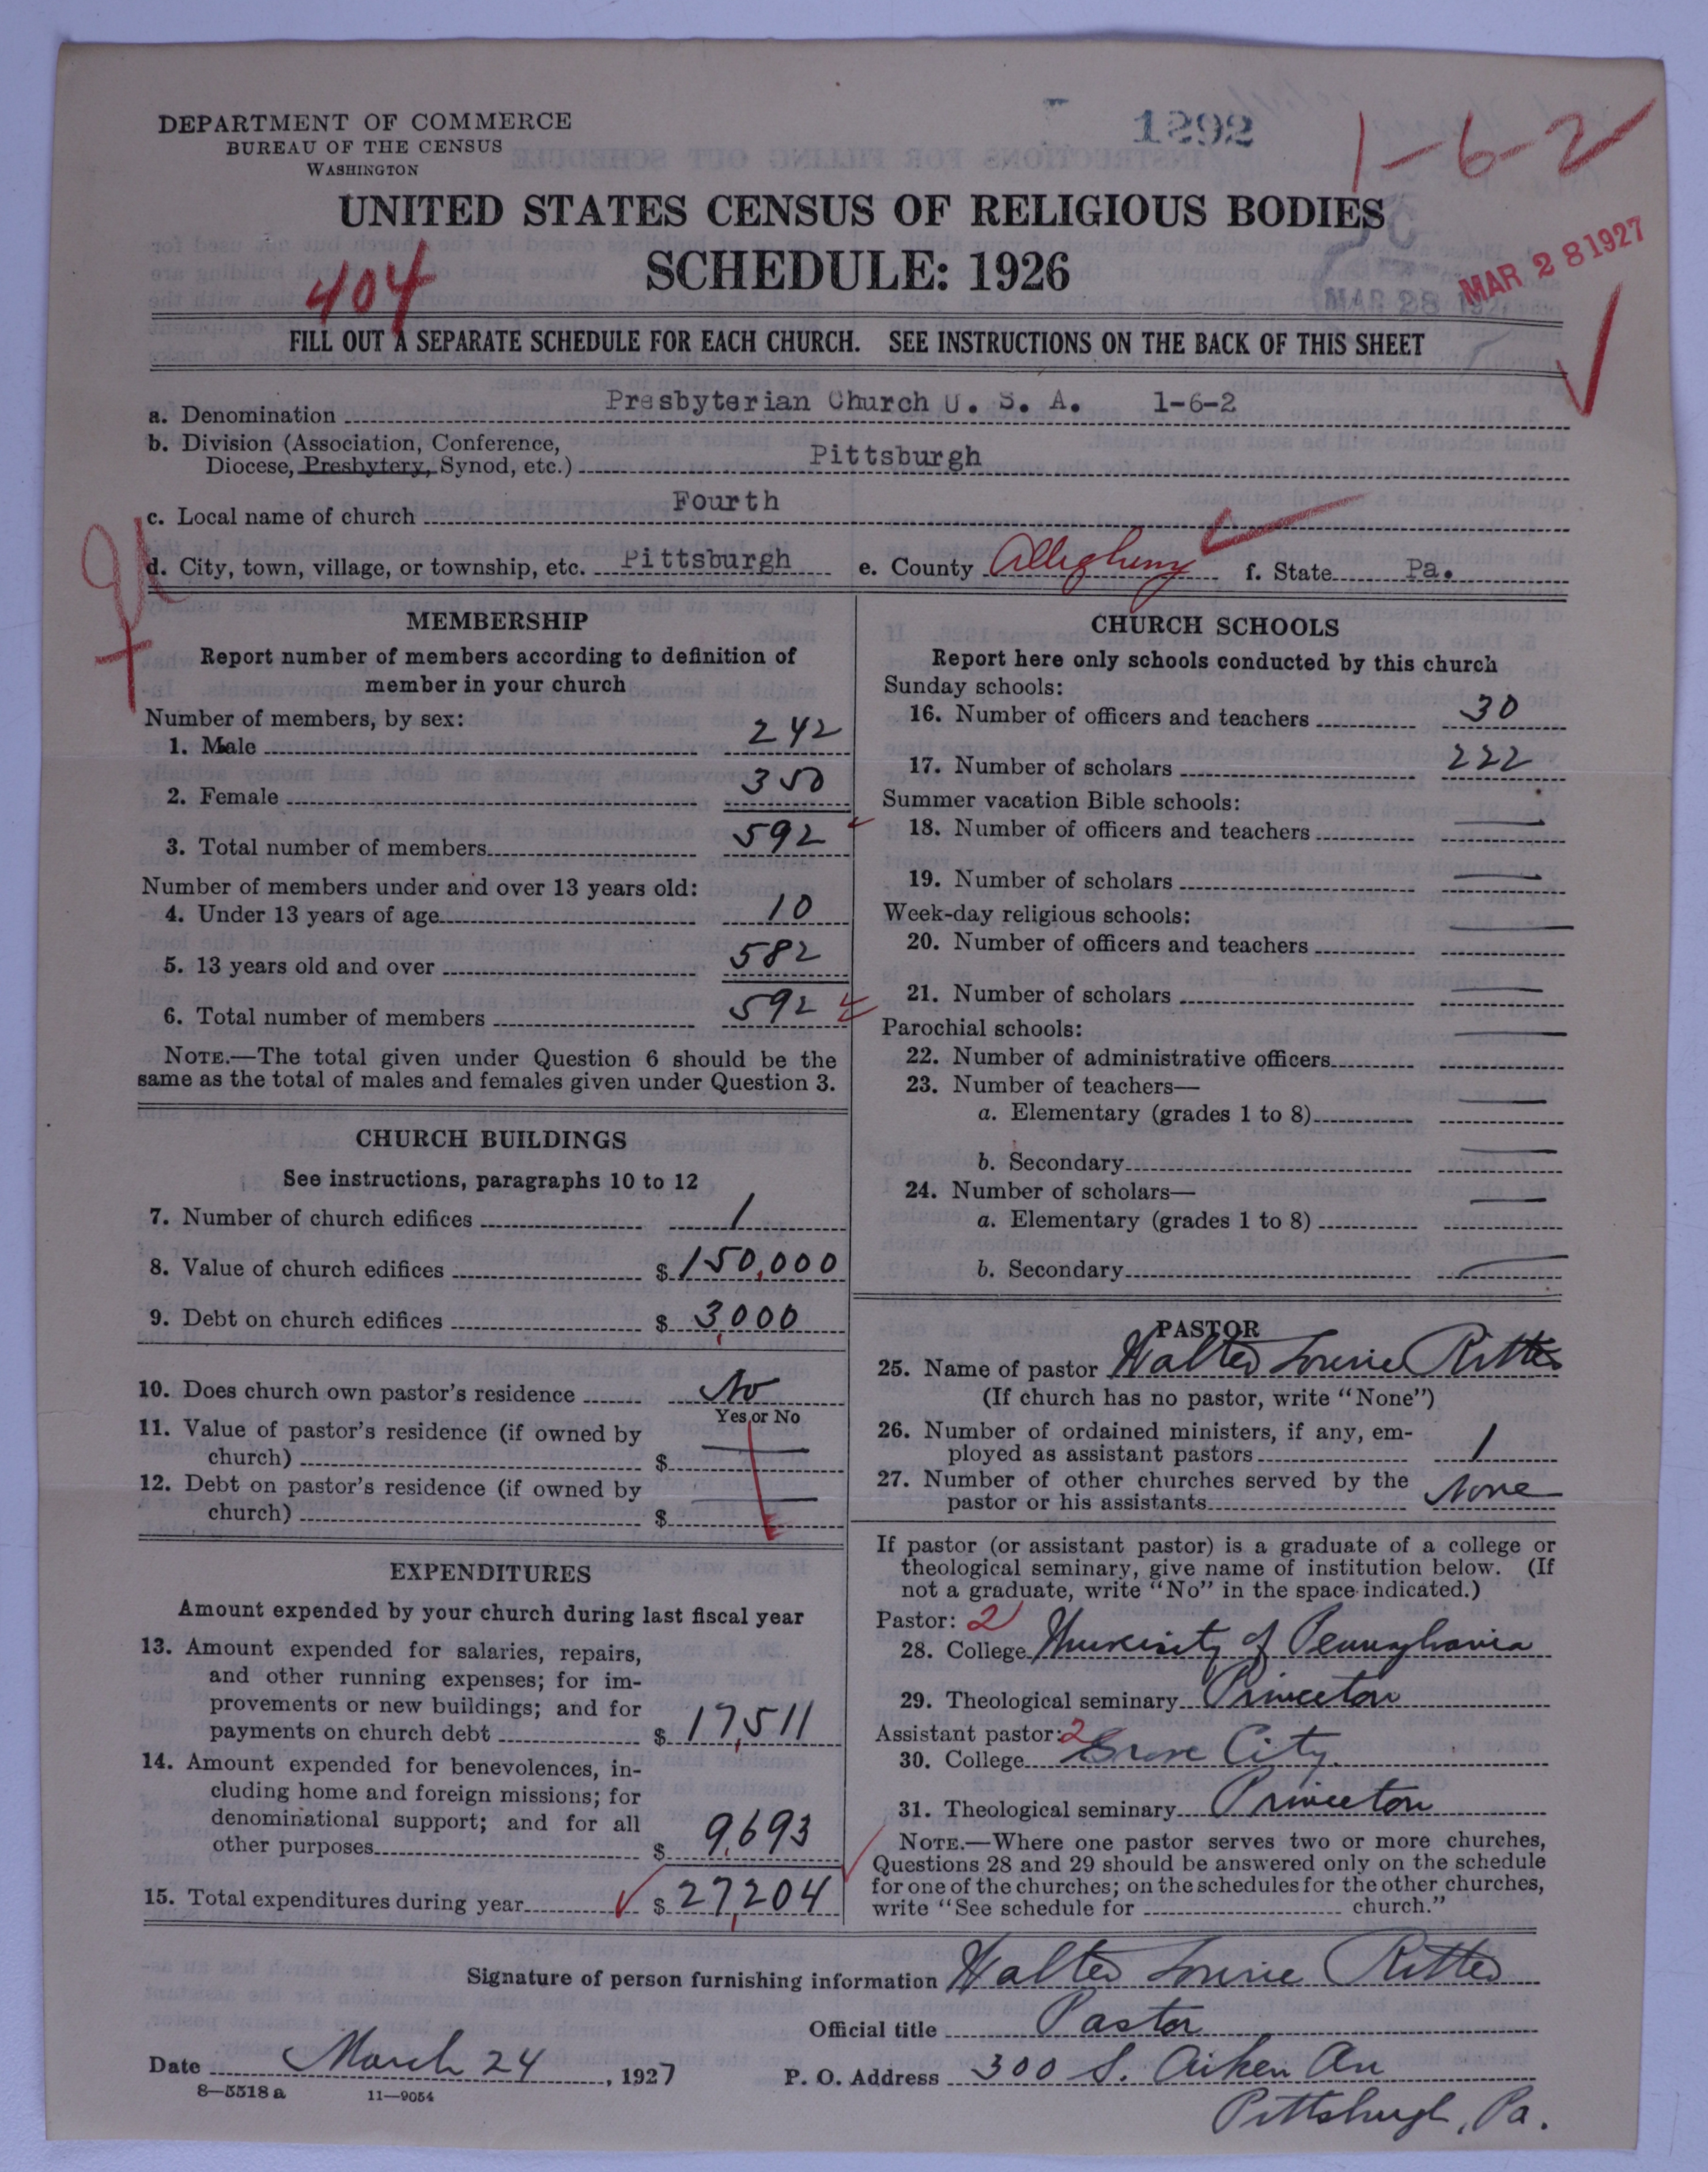 DEPARTMENT OF COMMERCE
BUREAU OF THE CENSUS
WASHINGTON
1292
1-6-2
UNITED STATES CENSUS OF RELIGIOUS BODIES
SCHEDULE: 1926
404
MAR 28 1927
MAR 28 1927
FILL OUT A SEPARATE SCHEDULE FOR EACH CHURCH. SEE INSTRUCTIONS ON THE BACK OF THIS SHEET
a. Denomination Presbyterian Church U. S. A. 1-6-2
b. Division (Association, Conference,
Diocese, Presbytery, Synod, etc.) Pittsburgh
c. Local name of church Fourth
d. City, town, village, or township, etc. Pittsburgh e. County Allegheny f. State Pa.
MEMBERSHIP
Report number of members according to definition of
member in your church
Number of members, by sex:
1. Male 242
2. Female 350
3. Total number of members 592
Number of members under and over 13 years old:
4. Under 13 years of age 10
5. 13 years old and over 582
6. Total number of members 592
NOTE.—The total given under Question 6 should be the
same as the total of males and females given under Question 3.
CHURCH BUILDINGS
See instructions, paragraphs 10 to 12
7. Number of church edifices 1
8. Value of church edifices $ 150,000
9. Debt on church edifices $ 3,000
10. Does church own pastor's residence No
Yes or No
11. Value of pastor's residence (if owned by
church) $ —
12. Debt on pastor's residence (if owned by
church) $ —
EXPENDITURES
Amount expended by your church during last fiscal year
13. Amount expended for salaries, repairs,
and other running expenses; for im-
provements or new buildings; and for
payments on church debt $ 17,511
14. Amount expended for benevolences, in-
cluding home and foreign missions; for
denominational support; and for all
other purposes $ 9,693
15. Total expenditures during year $ 27,204
CHURCH SCHOOLS
Report here only schools conducted by this church
Sunday schools:
16. Number of officers and teachers 30
17. Number of scholars 222
Summer vacation Bible schools:
18. Number of officers and teachers —
19. Number of scholars —
Week-day religious schools:
20. Number of officers and teachers —
21. Number of scholars —
Parochial schools:
22. Number of administrative officers —
23. Number of teachers—
a. Elementary (grades 1 to 8) —
b. Secondary —
24. Number of scholars—
a. Elementary (grades 1 to 8) —
b. Secondary —
PASTOR
25. Name of pastor Walter Lowrie Ritter
(If church has no pastor, write "None")
26. Number of ordained ministers, if any, em-
ployed as assistant pastors 1
27. Number of other churches served by the
pastor or his assistants None
If pastor (or assistant pastor) is a graduate of a college or
theological seminary, give name of institution below. (If
not a graduate, write "No" in the space indicated.)
Pastor: 2
28. College University of Pennsylvania
29. Theological seminary Princeton
Assistant pastor: 2
30. College Grove City
31. Theological seminary Princeton
NOTE.—Where one pastor serves two or more churches,
Questions 28 and 29 should be answered only on the schedule
for one of the churches; on the schedules for the other churches,
write "See schedule for church."
Signature of person furnishing information Walter Lowrie Ritter
Official title Pastor
Date March 24, 1927 P. O. Address 300 S. Aiken Av
Pittsburgh, Pa.
8—5518 a 11—9054